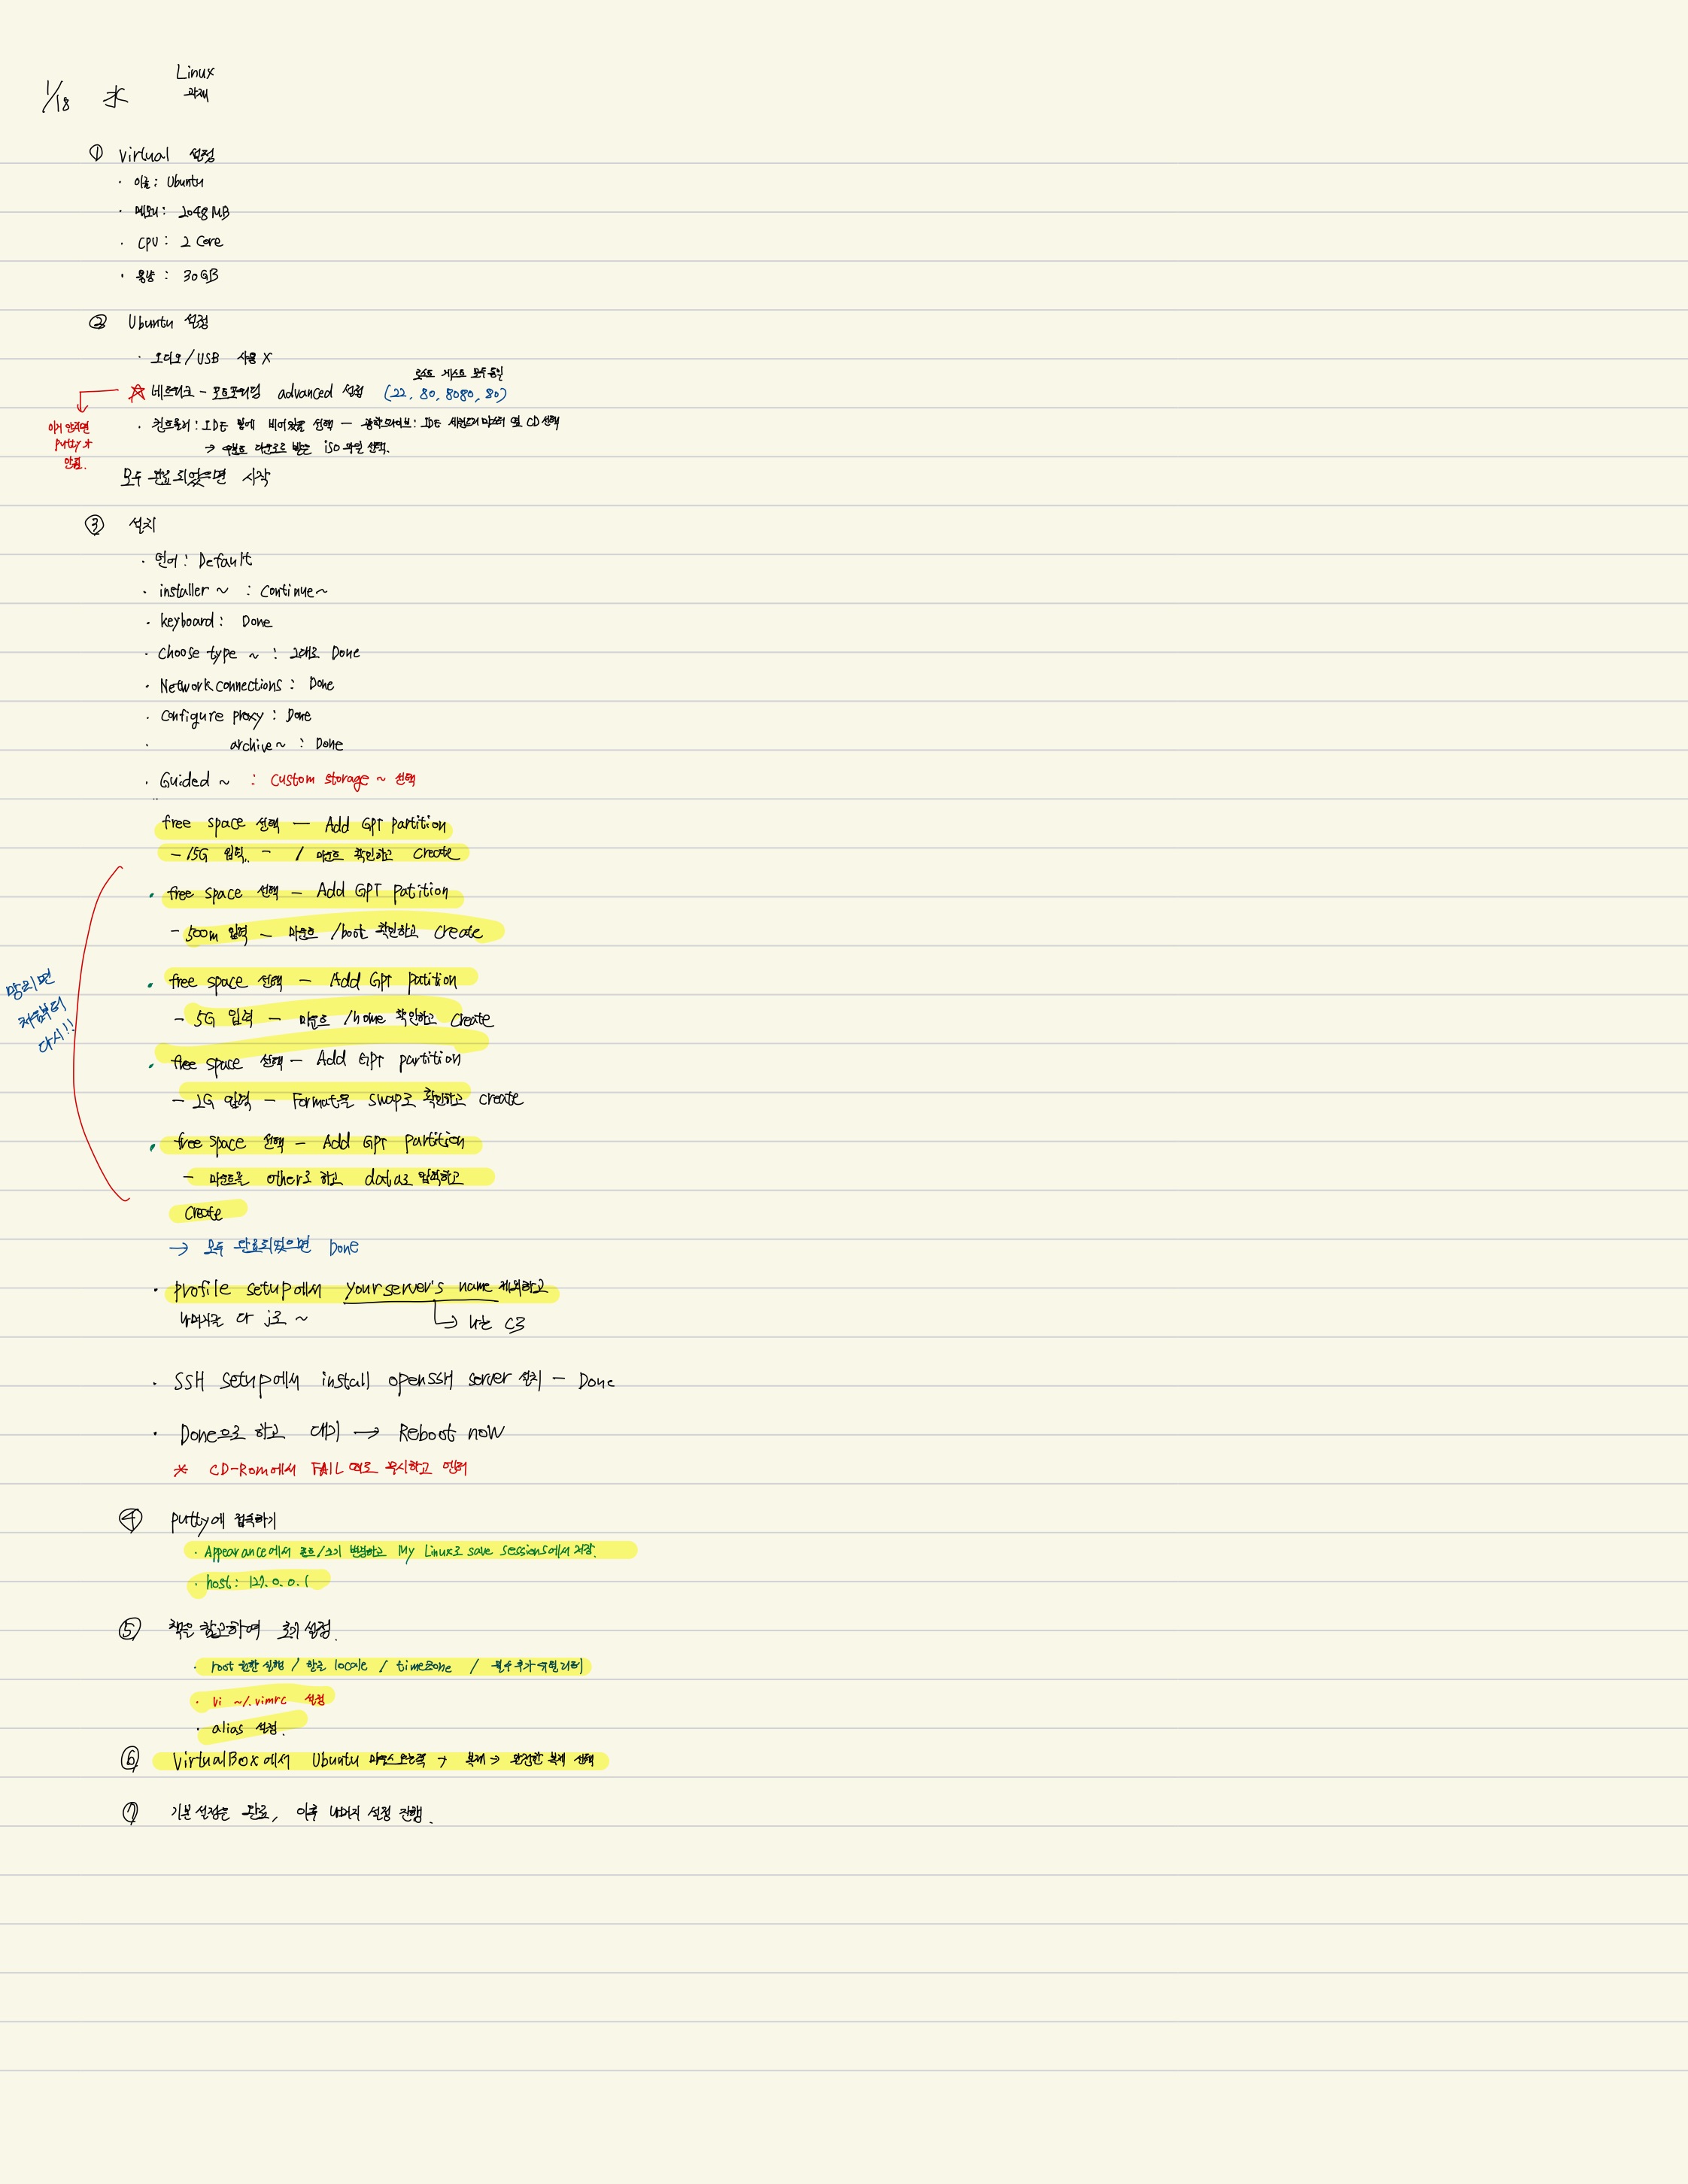 1/18 水 Linux
과제
① Virtual 설정
· 이름: Ubuntu
· 메모리: 2048MB
· CPU: 2 Core
· 용량: 30GB
② Ubuntu 설정
· 오디오/USB 사용 X
호스트 게스트 모두 동일
☆ 네트워크 - 포트포워딩 advanced 설정 (22, 80, 8080, 80)
이거 안하면
putty가
안됨.
· 컨트롤러: IDE 밑에 비어있음 선택 - 광학드라이브: IDE 세컨더리 마스터 옆 CD 선택
→ 우분투 다운로드 받은 iso 파일 선택.
모두 완료되었으면 시작
③ 설치
· 언어: Default
· installer ~ : Continue~
· keyboard: Done
· Choose type ~ : 그대로 Done
· Network connections: Done
· Configure proxy: Done
· archive~ : Done
· Guided ~ : Custom storage ~ 선택
free space 선택 - Add GPT partition
- 15G 입력 - / 마운트 확인하고 create
· free space 선택 - Add GPT patition
- 500m 입력 - 마운트 /boot 확인하고 create
· free space 선택 - Add GPT patition
- 5G 입력 - 마운트 /home 확인하고 create
망치면
처음부터
다시!!
· free space 선택 - Add GPT partition
- 2G 입력 - Format을 swap로 확인하고 create
· free space 선택 - Add GPT partition
- 마운트를 other로 하고 data로 입력하고
create
→ 모두 완료되었으면 Done
· profile setup에서 your server's name 제외하고
나머지는 다 j로 ~ → 나는 C3
· SSH setup에서 install openSSH server 설치 - Done
· Done으로 하고 대기 → Reboot now
* CD-Rom에서 FAIL 떠도 무시하고 엔터
④ putty에 접속하기
· Appearance에서 폰트/크기 변경하고 My Linux로 save sessions에서 저장.
· host: 127.0.0.1
⑤ 책을 참고하여 초기 설정.
· root 권한 실행 / 한글 locale / timezone / 필수 추가 유틸리티
· vi ~/.vimrc 설정
· alias 설정.
⑥ VirtualBox에서 Ubuntu 마우스 오른쪽 → 복제 → 완전한 복제 선택
⑦ 기본 설정은 완료, 이후 나머지 설정 진행.